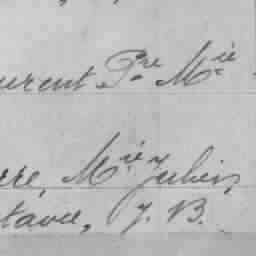 urent Pre Mie
rre, Mie Julien,
tave, J. B.